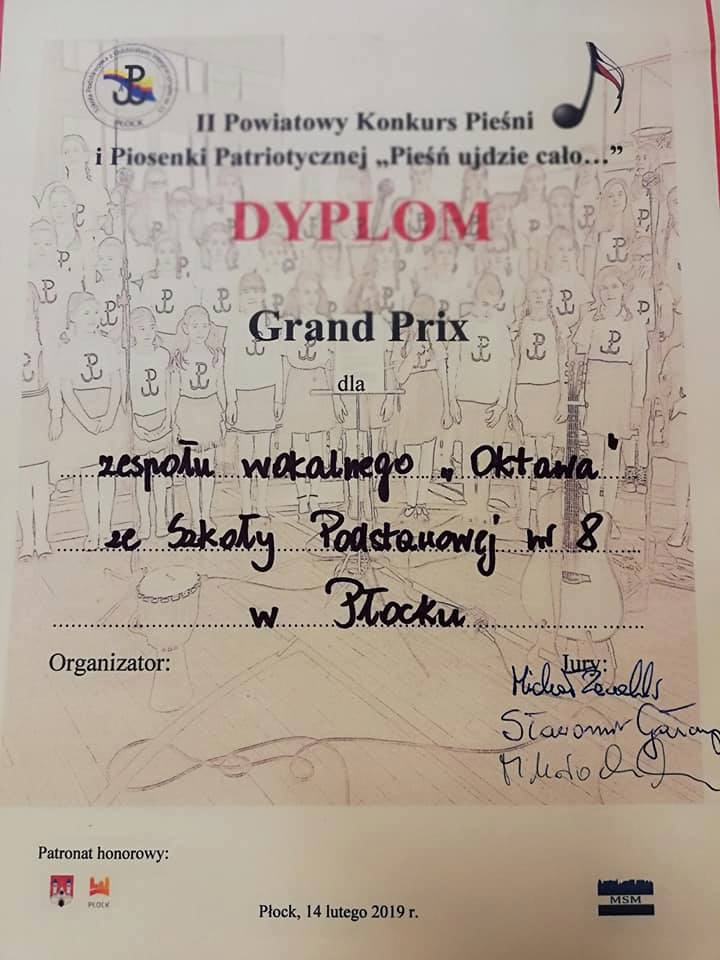 PŁOCK
II Powiatowy Konkurs Pieśni
i Piosenki Patriotycznej „Pieśń ujdzie cało...”
DYPLOM
Grand Prix
dla
zespołu wokalnego „Oktawa"
ze Szkoły Podstawowej nr 8
w Płocku
Organizator:
Jury:
Sławomir
Patronat honorowy:
PŁOCK
MSM
Płock, 14 lutego 2019 r.